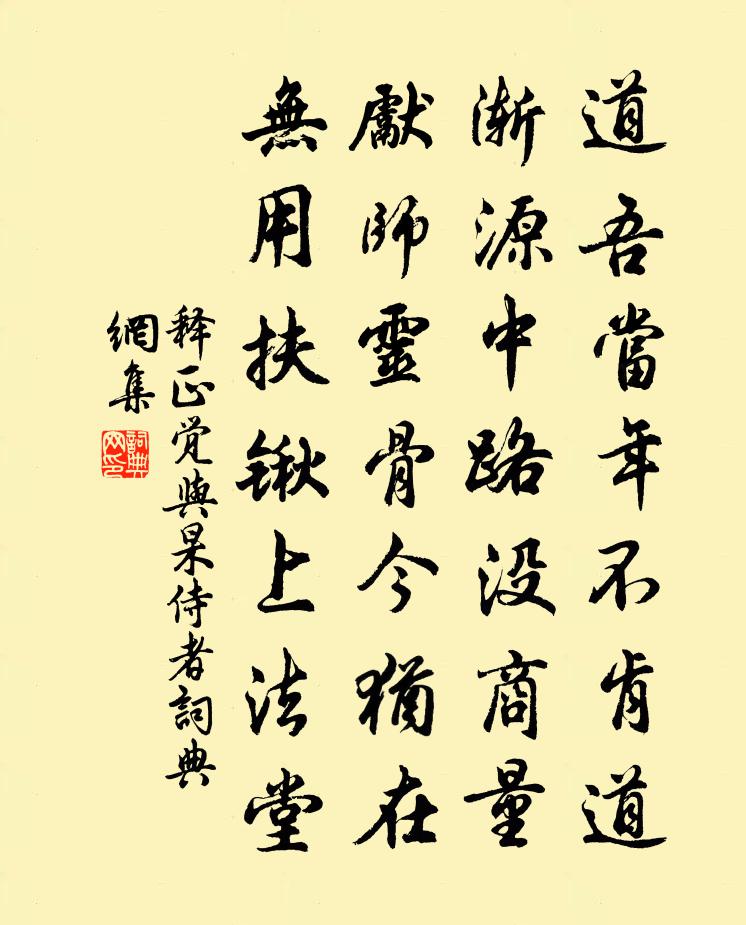 道吾當年不肯道
渐源中路没商量
獻師靈骨今猶在
無用扶锹上法堂
释正觉與杲侍者詞典
網集
詞典
网印